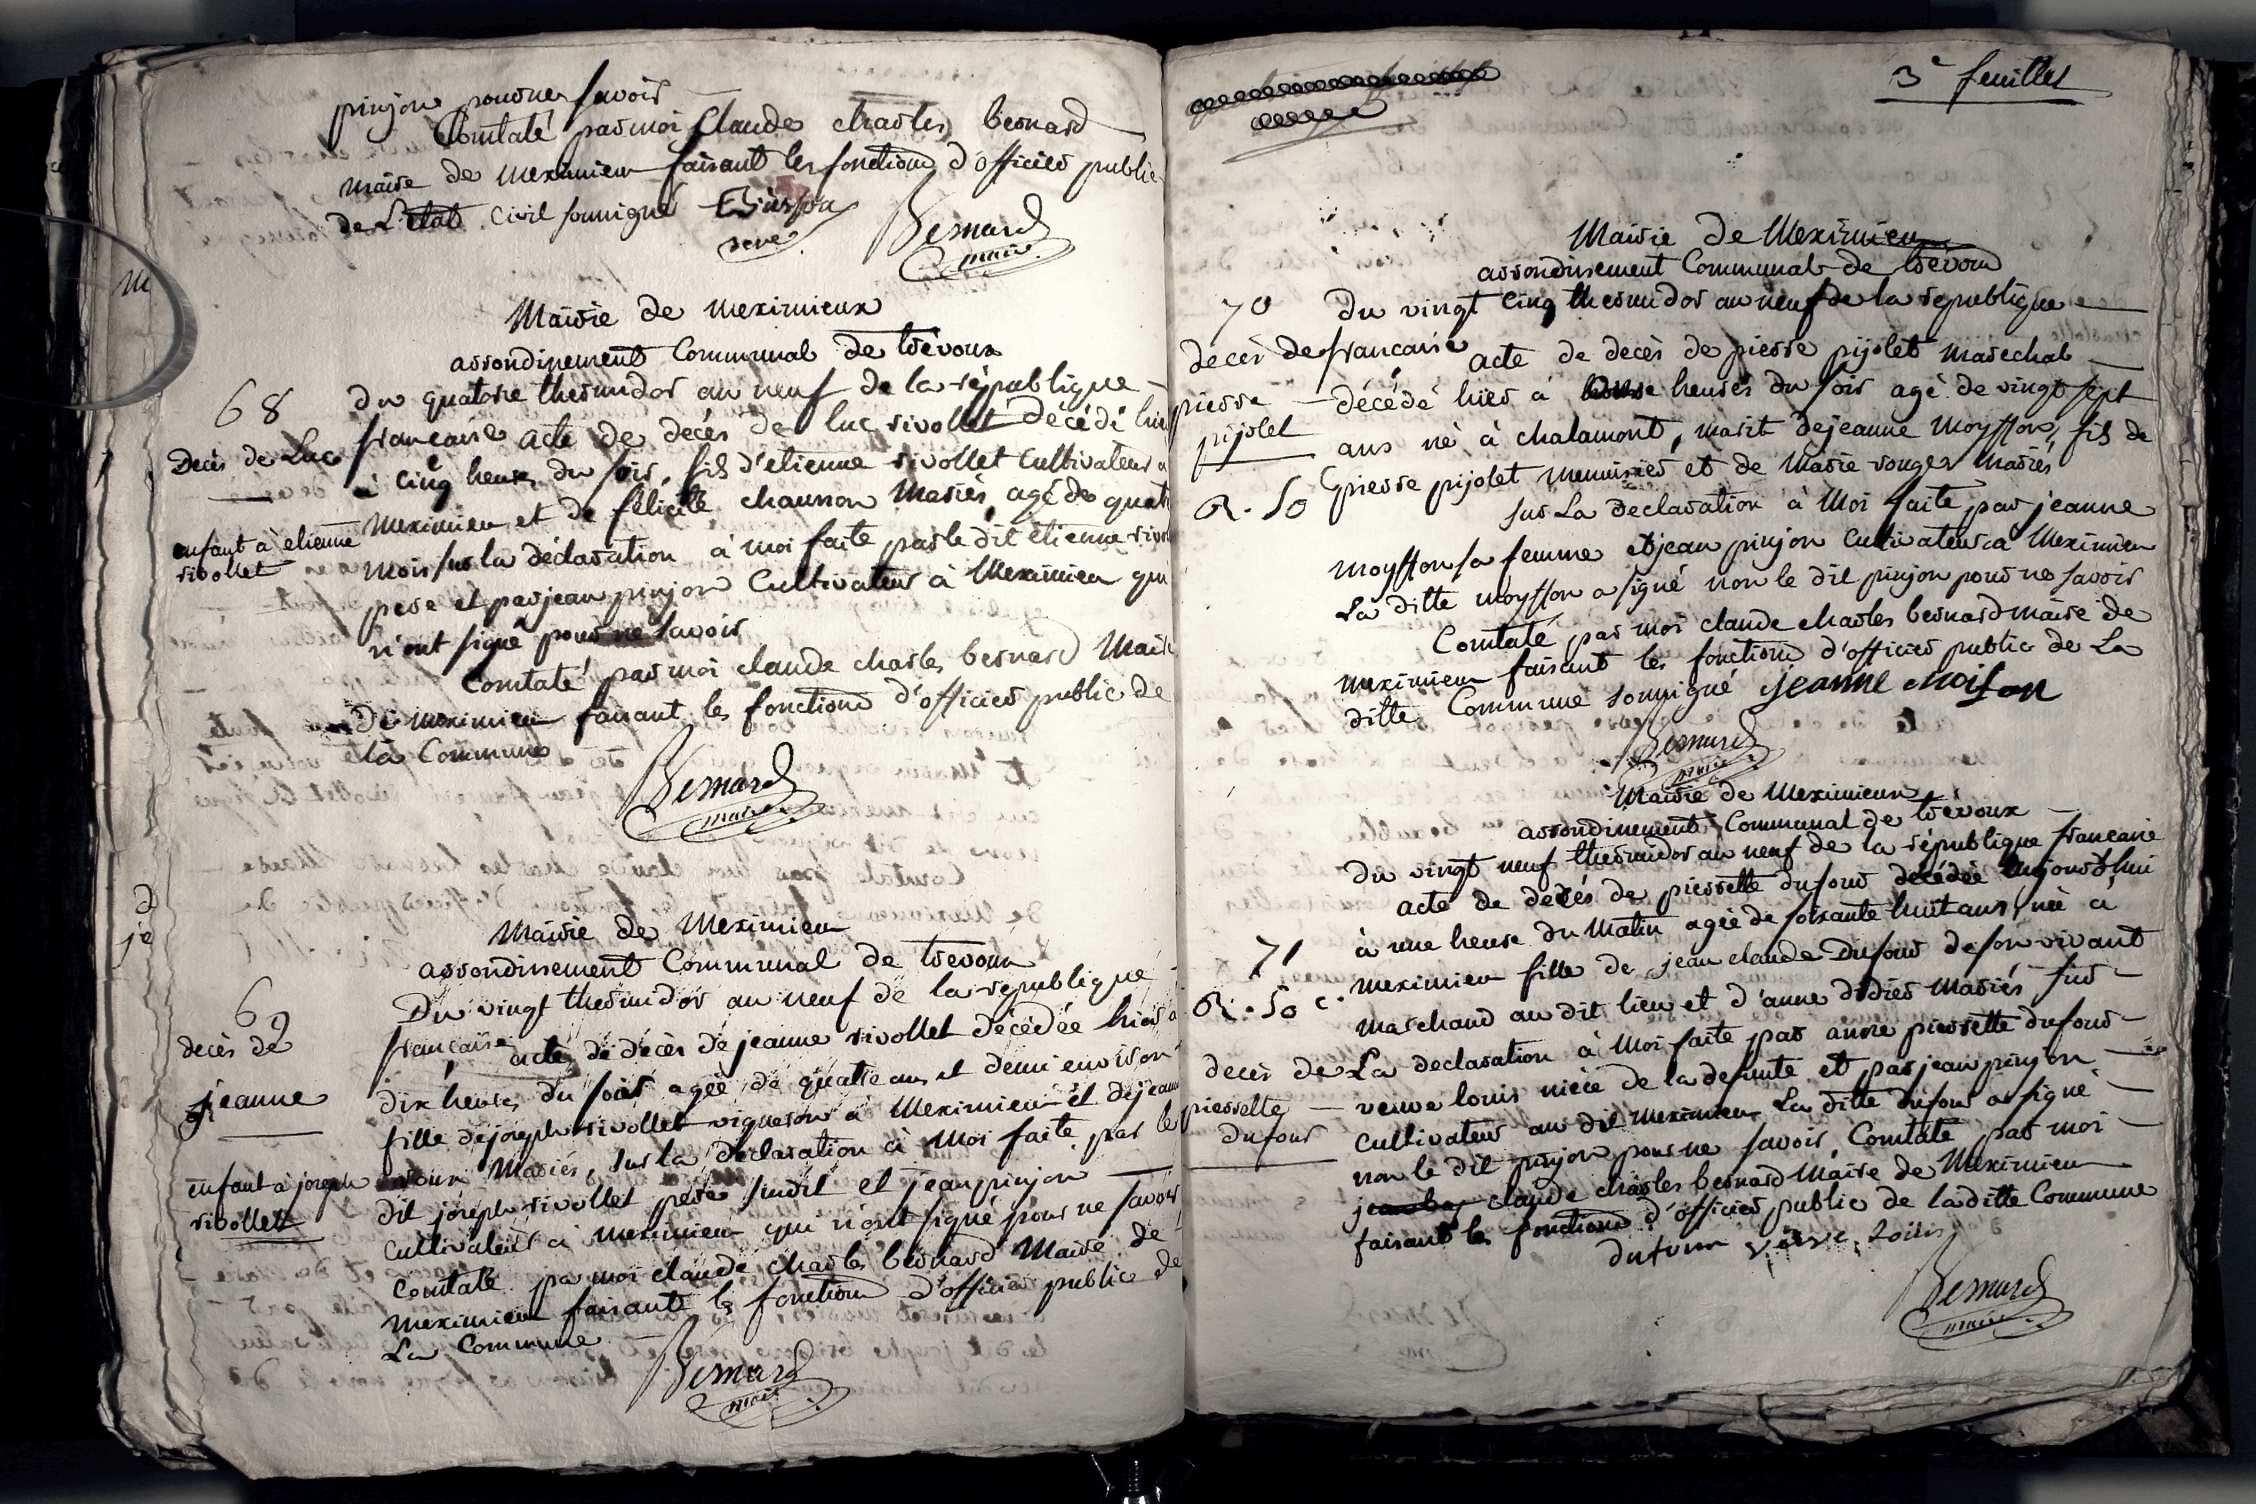 pinjon pour ne savoir
Comtaté par moi Claude charles bernard
maire de meximieu faisant les fonctions d'officier public
de L'état civil sousigné
Bernard
maire
Mairie de meximieux
arrondissement Communal de trévoux
68
du quatorze thermidor an neuf de la république
Decès de Luc
francaise acte de decés de luc rivollet décédé hier
à cinq heures du soir, fils d'etienne rivollet cultivateur a
enfant à etienne
rivollet
meximieu et de félicité chausson mariés, agé de quatre
mois sur la déclaration à moi faite par le dit etienne
pere et par jean pinjon Cultivateur à Meximieu qui
n'ont signé pour ne savoir
Comtaté par moi claude charles bernard Maire
de meximieu faisant les fonctions d'officier public de
la Commune
Bernard
maire
Mairie de Meximieu
arrondissement Communal de trevoux
69
Du vingt thermidor an neuf de la republique
decès de
jeanne
francaise acte de décès de jeanne rivollet décédée hier a
dix heures du soir agée de quatre ans et demi environ
fille de joseph rivollet vigneron à Meximieu et de jeanne
enfant à joseph
rivollet
mariés, sur la declaration à moi faite par le
dit joseph rivollet pere sudit et jean pinjon
cultivateur à meximieu qui n'ont signé pour ne savoir
Comtaté par moi claude charles bernard Maire de
meximieu faisant les fonctions d'officier public de
La Commune
Bernard
maire
3e feuillet
Mairie de Meximieu
arrondissement Communal de trévoux
70
du vingt cinq thermidor an neuf de la republique
decès de
pierre
pijolet
R. 50
francaise
acte de decès de pierre pijolet marechal
décédé hier à heures du soir agé de vingt sept
ans né à chalamont, marit de jeanne moysson, fils de
pierre pijolet menuisier et de Marie rouger mariés
sur La declaration à Moi faite par jeanne
moysson sa femme et jean pinjon cultivateur à Meximieu
La ditte moysson a signé non le dit pinjon pour ne savoir
Comtaté par moi claude charles bernard maire de
meximieu faisant les fonctions d'officier public de La
ditte Commune sousigné jeanne Moison
Bernard
maire
Mairie de Meximieux
arrondissement Communal de trévoux
du vingt neuf thermidor an neuf de la république francaise
acte de decés de pierrette dufour decédée aujourd'hui
71
R. 50 c.
à une heure du Matin agée de soixante huit ans, née à
meximieu fille de jean claude Dufour de son vivant
marchand au dit lieu et d'anne didier mariés sur
decès de
pierrette
dufour
La declaration à Moi faite par anne pierrette dufour
veuve louis niéce de la defunte et par jean pinjon
cultivateur au dit meximieu La ditte dufour a signé
non le dit pinjon pour ne savoir Comtaté par moi
claude charles bernard Maire de Meximieu
faisant les fonctions d'officier public de la ditte Commune
dufour veuve Louis
Bernard
maire